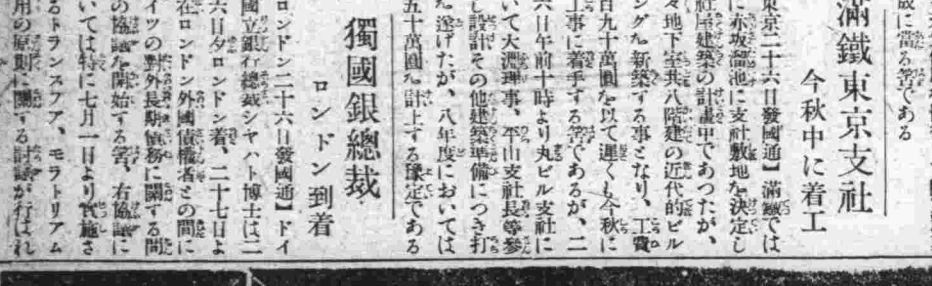 設に當る筈である
滿鐵東京支社
今秋中に着工
東京二十六日發國通】滿鐵では
に赤坂溜池に支社敷地を決定し
社屋建築の計畫中であつたが、
々地下室共八階建の近代的ビル
ングを新築する事となり、工費
百九十萬圓を以て遲くも今秋に
工事に着手する筈であるが、二
六日午前十時より丸ビル支社に
いて大淵理事、平山支社長等參
し設計その他建築準備につき打
を遂げたが、八年度においては
五十萬圓を計上する豫定である
獨國銀總裁
ロンドン到着
ロンドン二十六日發國通】ドイ
國立銀行總裁シヤハト博士は二
六日夕ロンドン着、二十七日よ
在ロンドン外國債權者との間に
イツの對外長期債務に關する問
の協議を開始する筈、右協議に
いては特に七月一日より實施さ
るトランスフア、モラトリアム
用の原則に關する討議が行はれ